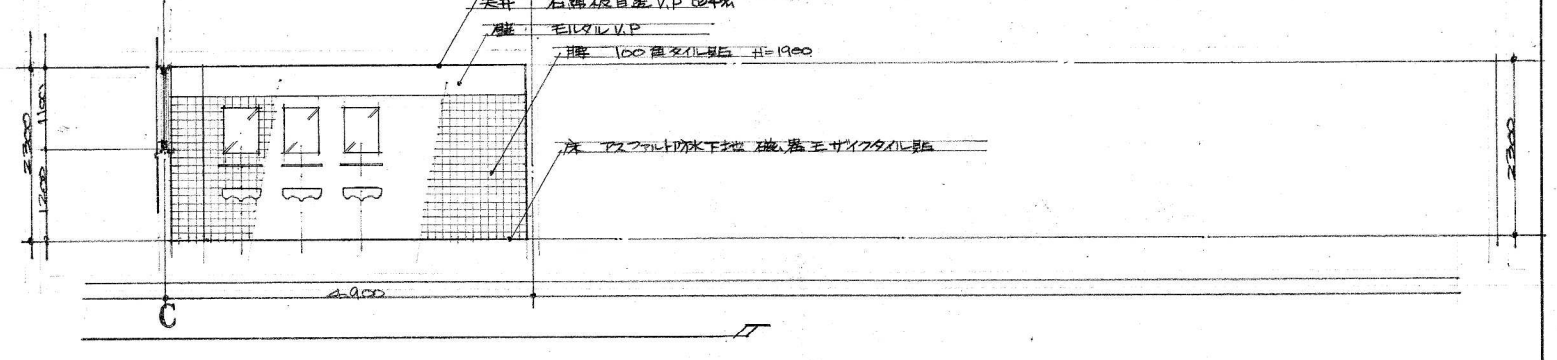 天井 石綿板目透 V.P
壁 モルタル V.P
腰 100角タイル貼 H=1900
床 アスファルト防水下地 磁器モザイクタイル貼
2300
1100
1200
2300
4900
C